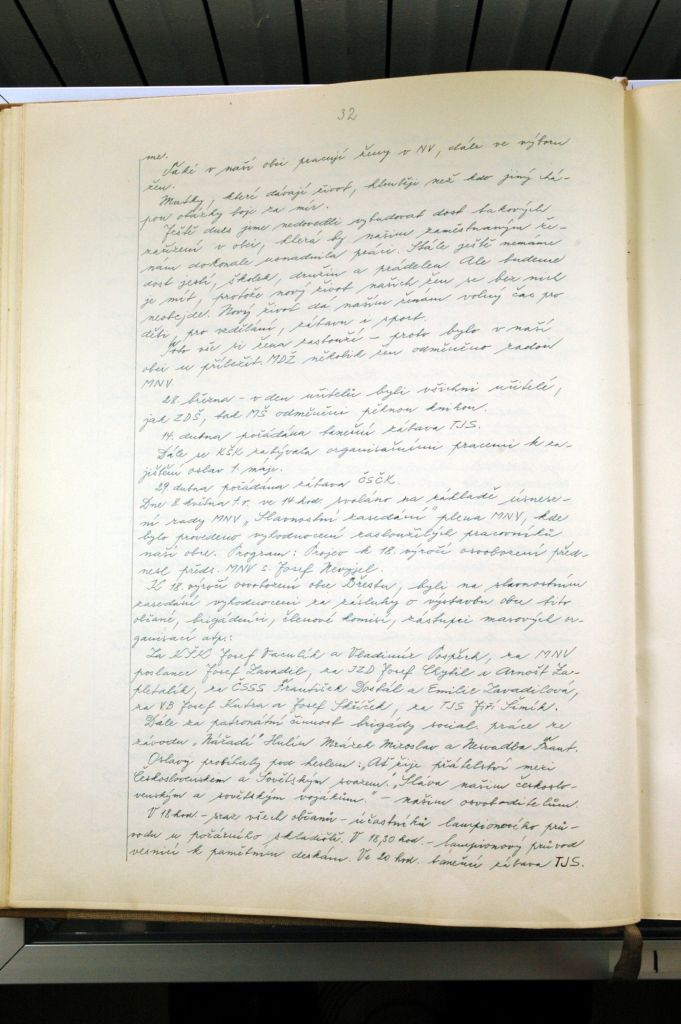 32
me.
Také v naší obci pracují ženy v NV, dále ve výboru
žen.
Matky, které dávají život, hlouběji než kdo jiný chá-
pou otázky boje za mír.
Ještě dnes jsme nedovedli vybudovat dost takových
zařízení v obci, která by našim zaměstnaným že-
nám dokonale usnadnila práci. Stále ještě nemáme
dost jeslí, školek, družin a prádelen. Ale budeme
je mít, protože nový život našich žen se bez nich
neobejde. Nový život dá našim ženám volný čas pro
děti, pro vzdělání, zábavu i sport.
Toto vše si žena zaslouží – proto bylo v naší
obci u příležit. MDŽ několik žen odměněno radou
MNV.
28. března – v den učitelů byli všichni učitelé,
jak ZDŠ, tak MŠ odměněni pěknou knihou.
14. dubna pořádána taneční zábava TJS.
Dále se KŠK zabývala organisačními pracemi k za-
jištění oslav 1. máje.
29. dubna pořádána zábava ČSČK.
Dne 8. května t.r. ve 14 hod. svoláno na základě usnese-
ní rady MNV „Slavnostní zasedání" plena MNV, kde
bylo provedeno vyhodnocení zasloužilých pracovníků
naší obce. Program: Projev k 18. výročí osvobození před-
nesl předs. MNV s. Josef Nevyjel.
K 18. výročí osvobození obce Břestu, byli na slavnostním
zasedání vyhodnoceni za zásluhy o výstavbu obce tito
občané, brigádníci, členové komisí, zástupci masových or-
ganisací atp.:
Za Josef Vaculík a Vladimír Pospěch, za MNV
poslanec Josef Zavadil, za JZD Josef Chytil a Arnošt Za-
pletalík, za ČSSS František Dostál a Emilie Zavadilová,
za VB Josef Kutra a Josef za TJS Jiří Šimík.
Dále za patronátní činnost brigády social. práce ze
závodu „Nářadí" Hulín Mrázek Miroslav a Nesvadba Frant.
Oslavy probíhaly pod heslem: „Ať žije přátelství mezi
Československem a Sovětským svazem." „Sláva našim českoslo-
venským a sovětským vojákům." – našim osvoboditelům.
V 18 hod. – sraz všech občanů – účastníků lampionového prů-
vodu u požárního skladiště. V 18,30 hod. – lampionový průvod
vesnicí k pamětním deskám. Ve 20 hod. taneční zábava TJS.
1